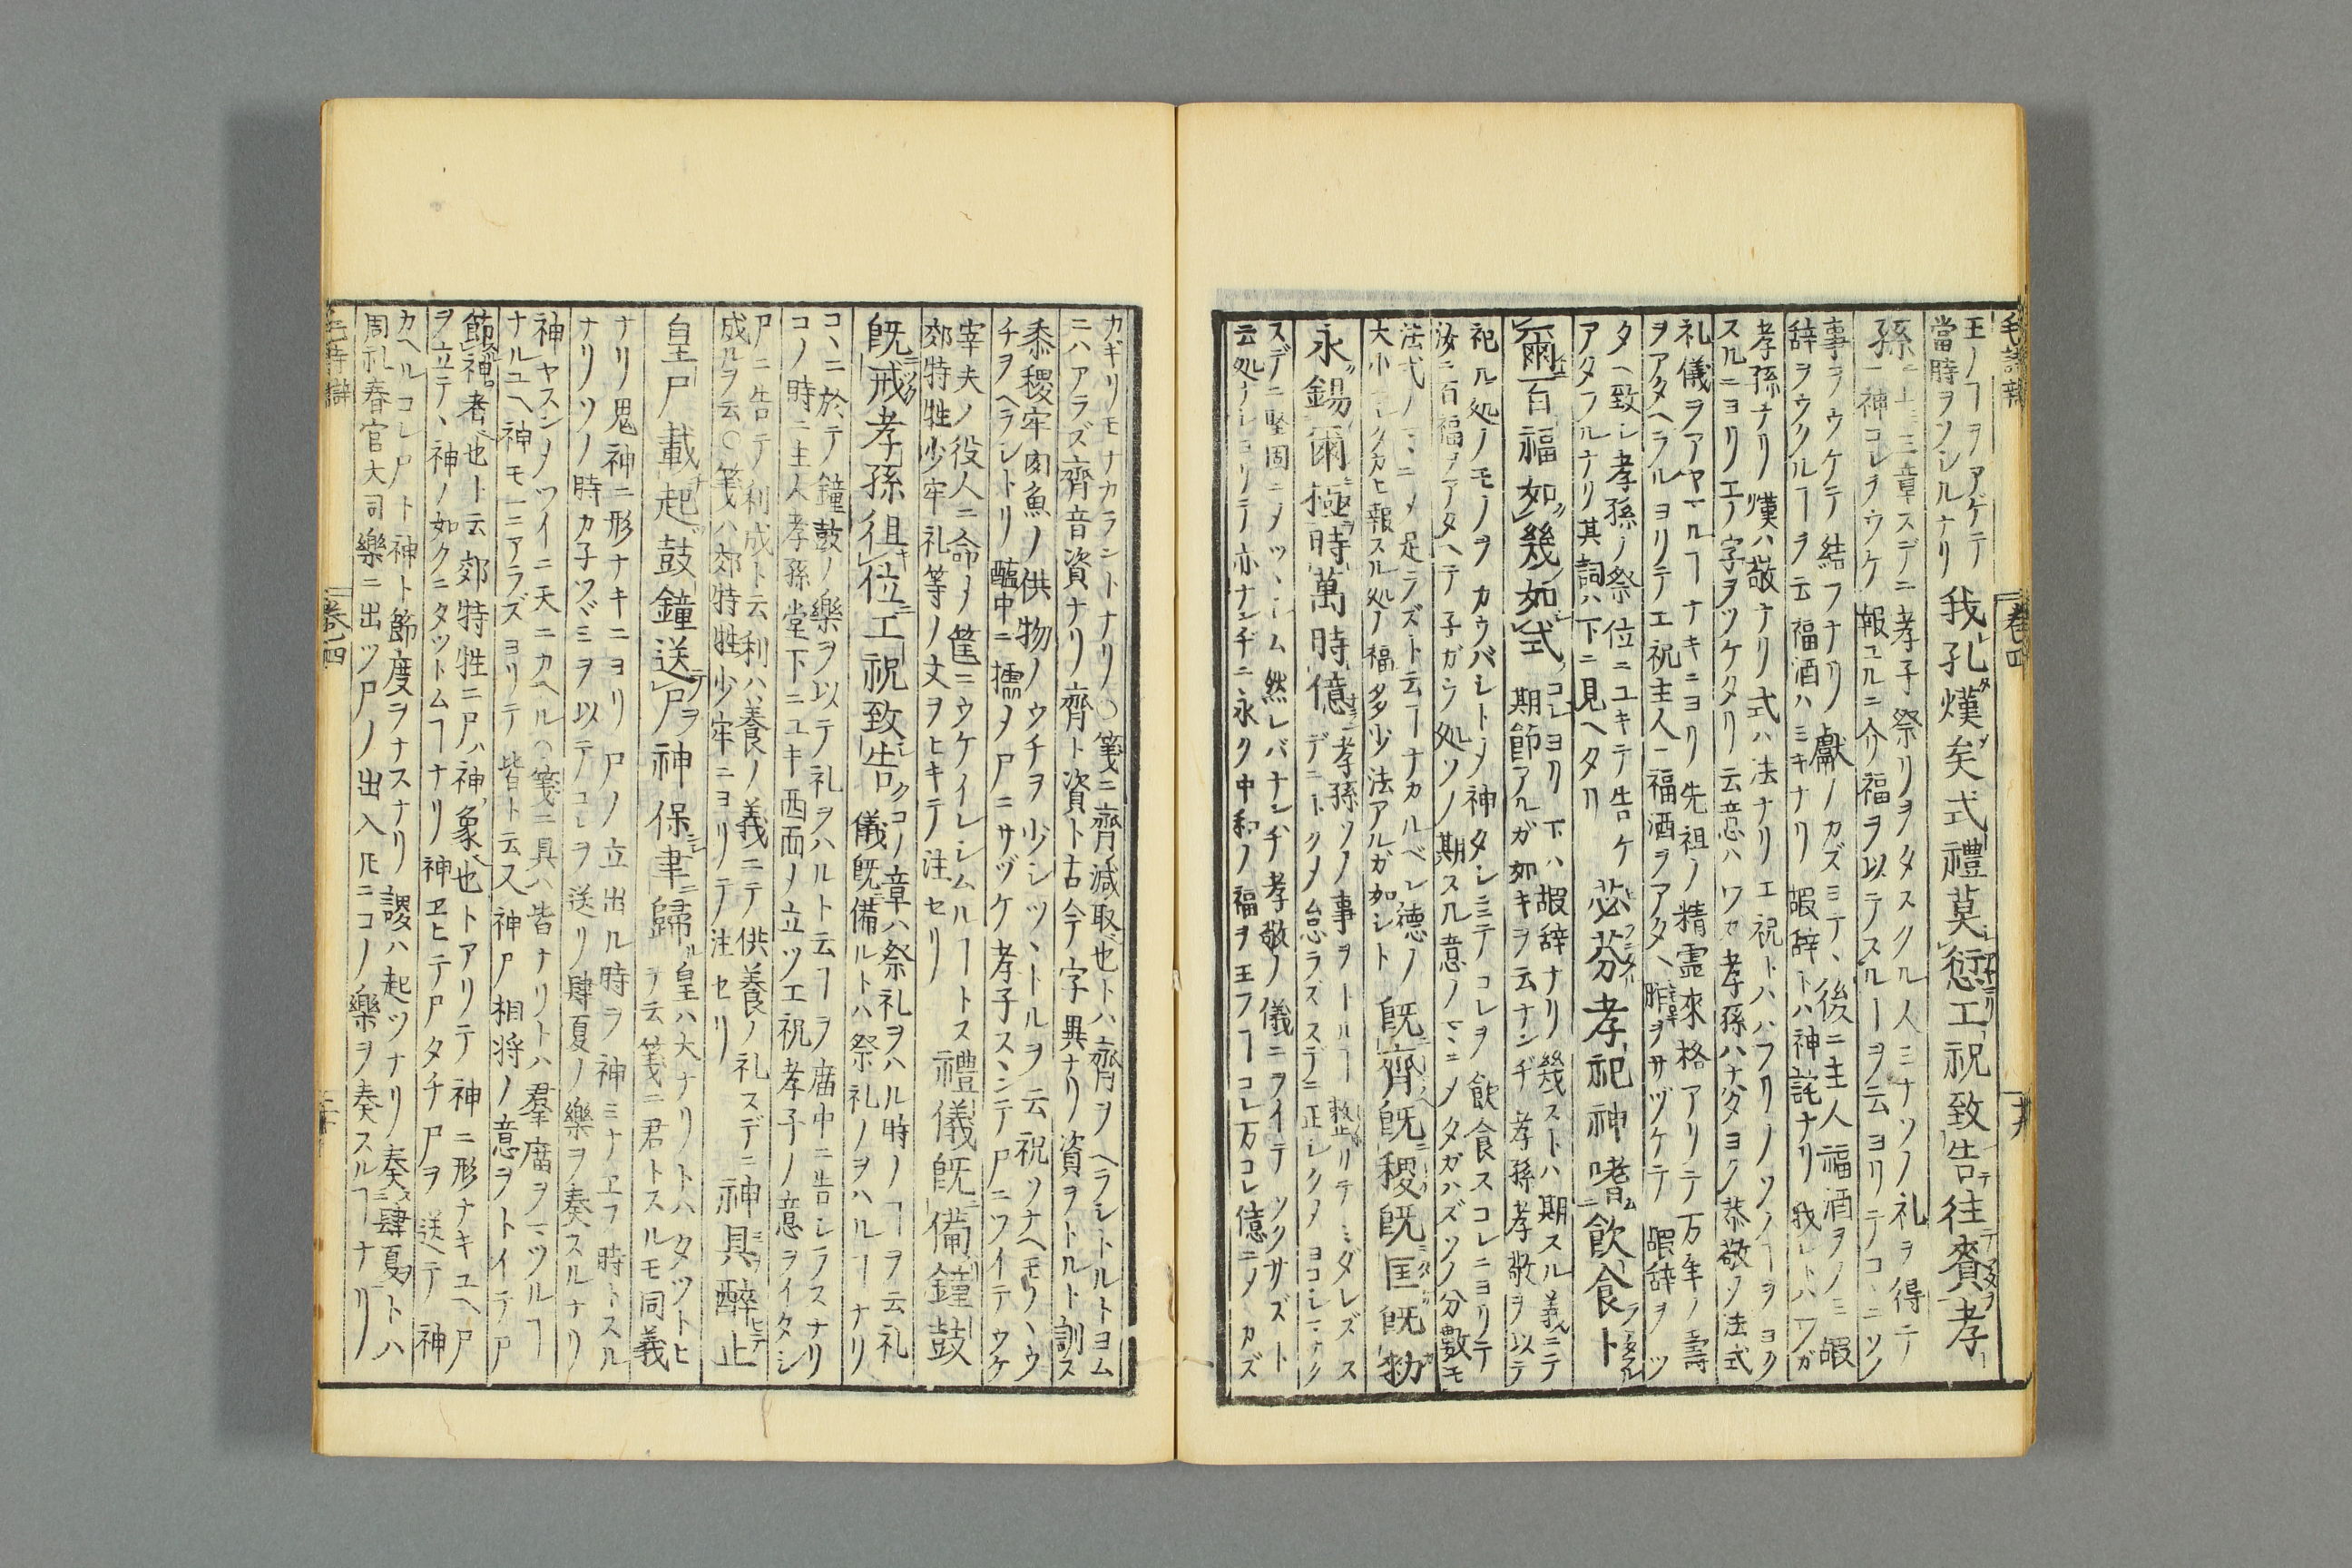 毛詩辯
卷四
王ノヿヲアゲテ
當時ヲソシルナリ
我孔熯矣式禮莫愆工祝致告徂賚孝
孫
上三章スデニ孝子祭リヲタスクル人ミナソノ礼ヲ得テ
神コレヲウケ報ユルニ介福ヲ以テスルヿヲ云ヨリテコヽニソノ
事ヲウケテ結フナリ獻ノカズヨテヽ後ニ主人福酒ヲノミ嘏
辞ヲウクルヿヲ云福酒ハミキナリ嘏辞トハ神託ナリ我レトハワガ
孝孫ナリ熯ハ敬ナリ式ハ法ナリエ祝トハハフリノツノヿヲヨク
スルニヨリエノ字ヲツケタリ云意ハワガ孝孫ハナハダヨク恭敬ノ法式
礼儀ヲアヤマルヿナキニヨリ先祖ノ精霊來格アリテ万年ノ壽
ヲアタヘラルヨリテエ祝主人ニ福酒ヲアタヘ胙ヲサヅケテ嘏辞ヲツ
タヘ致シ孝孫ノ祭位ニユキテ告ケ
アタフルナリ其詞ハ下ニ見ヘタリ
苾芬孝祀神嗜飲食卜
爾百福如幾如式
コレヨリ下ハ嘏辞ナリ幾ストハ期スル義ニテ
期節アルガ如キヲ云ナンヂ孝孫孝敬ヲ以テ
祀ル処ノモノヲカウバシトメ神タシミテコレヲ飲食スコレニヨリテ
汝ニ百福ヲアタヘテ子ガウ処ソノ期スル意ノマヽニメタガハズソノ分數モ
法式ノマヽニメ足ラズト云ヿナカルベシ德ノ
大小ニシタガヒ報スル処ノ福多少法アルガ如シト
既齊既稷既匡既勑
永錫爾極時萬時億
孝孫ソノ事ヲトルヿ整リテミダレズス
デニトクメ怠ラズスデニ正シクメヨコシマナク
スデニ堅固ニメツヽシム然レバナンヂ孝敬ノ儀ニヲイテツクサズト
云処ナシヨリテ亦ナンヂニ永ク中和ノ福ヲ玉フヿコレ万コレ億ニメカズ
カギリモナカラントナリ○箋ニ齊減取也トハ齊ヲヘラシトルトヨム
ニハアラズ齊音資ナリ齊ト資ト古今字異ナリ資ヲトルト訓ス
黍稷牢肉魚ノ供物ノウチヲ少シツヽトルヲ云祝ソナヘモノヽウ
チヲヘラシトリ醢中ニ擩メ尸ニサヅケ孝子スヽンデ尸ニツイテウケ
宰夫ノ役人ニ命メ筐ニウケイレシムルヿトス
郊特牲少牢礼等ノ文ヲヒキテ注セリ
禮儀既備鐘鼓
既戒孝孫徂位工祝致告
コノ章ハ祭礼ヲハル時ノヿヲ云礼
儀既備ルトハ祭礼ノヲハルヿナリ
コヽニ於テ鐘鼓ノ樂ヲ以テ礼ヲハルト云ヿヲ廟中ニ告シラスナリ
コノ時ニ主人孝孫堂下ニユキ西面ノ立ツエ祝孝子ノ意ヲイタシ
尸ニ告テ利成ト云利ハ養ノ義ニテ供養ノ礼スデニ
成ルヲ云○箋ハ郊特牲少牢ニヨリテ注セリ
神具醉止
皇尸載起鼓鐘送尸神保聿歸
皇ハ大ナリトハタツトヒ
ヲ云箋ニ君トスルモ同義
ナリ鬼神ニ形ナキニヨリ尸ノ立出ル時ヲ神ミナヱフ時トスル
ナリソノ時カ子ツヾミヲ以テコレヲ送リ肆夏ノ樂ヲ奏スルナリ
神ヤスンノツイニ天ニカヘル○箋ニ具ハ皆ナリトハ羣廟ヲマツルヿ
ナルユヘ神モ一ニアラズヨリテ皆ト云又神尸相将ノ意ヲトイテ尸
節神者也ト云郊特牲ニ尸ハ神象也トアリテ神ニ形ナキユヘ尸
ヲ立テヽ神ノ如クニタツトムヿナリ神ヱヒテ尸タチ尸ヲ送テ神
カヘルコレ尸ト神ト節度ヲナスナリ謖ハ起ツナリ奏肆夏トハ
周礼春官大司樂ニ出ツ尸ノ出入ㇳモニコノ樂ヲ奏スルヿナリ
毛詩辯
卷四